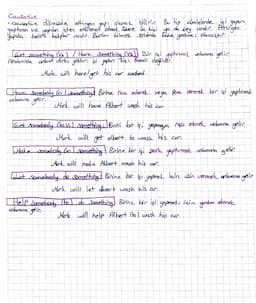 Causative
- Causative dilimizde ettirgen yapı olarak bilinir. Bu tip cümlelerde, işi yapan
yaptıran ve yapılan işten etkilenen olmak üzere üç kişi ya da şey vardır. Ettirgen
yapıda
Get something (V3) / Have something (V3) Bir işi yaptırmak anlamına gelir.
Aralarında anlam farkı yoktur. işi yapan kişi önemli değildir.
Mark will have/get his car washed
Have somebody (V1) something Birine rica ederek veya para vererek bir işi yaptırmak
anlamına gelir.
Mark will have Albert wash his car
Get somebody (to V1) something Birini bir işi yapmaya ikna etmek anlamına gelir.
Mark will get albert to wash his car.
Make somebody (V1) something Birine bir işi zorla yaptırmak anlamına gelir.
Mark will make Albert wash his car.
Let somebody do something Birine bir işi yapmak için izin vermek anlamına gelir
Mark will let albert wash his car.
Help somebody (to) do something Birine bir işi yapması için yardım etmek
anlamına gelir
Mark will help Albert (to) wash his car.